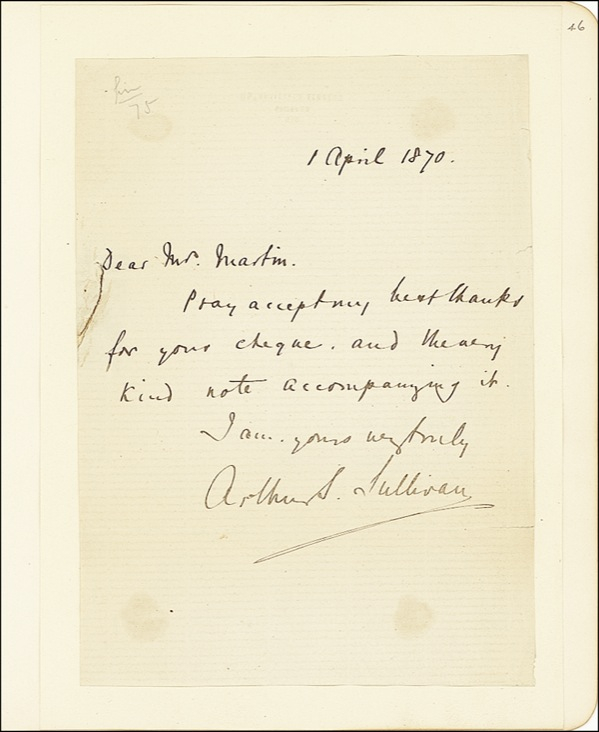 46
75
1 April 1870.
Dear Mr. Martin.
Pray accept my best thanks
for your cheque. and the very
kind note accompanying it.
I am. yours very truly
Arthur S. Sullivan